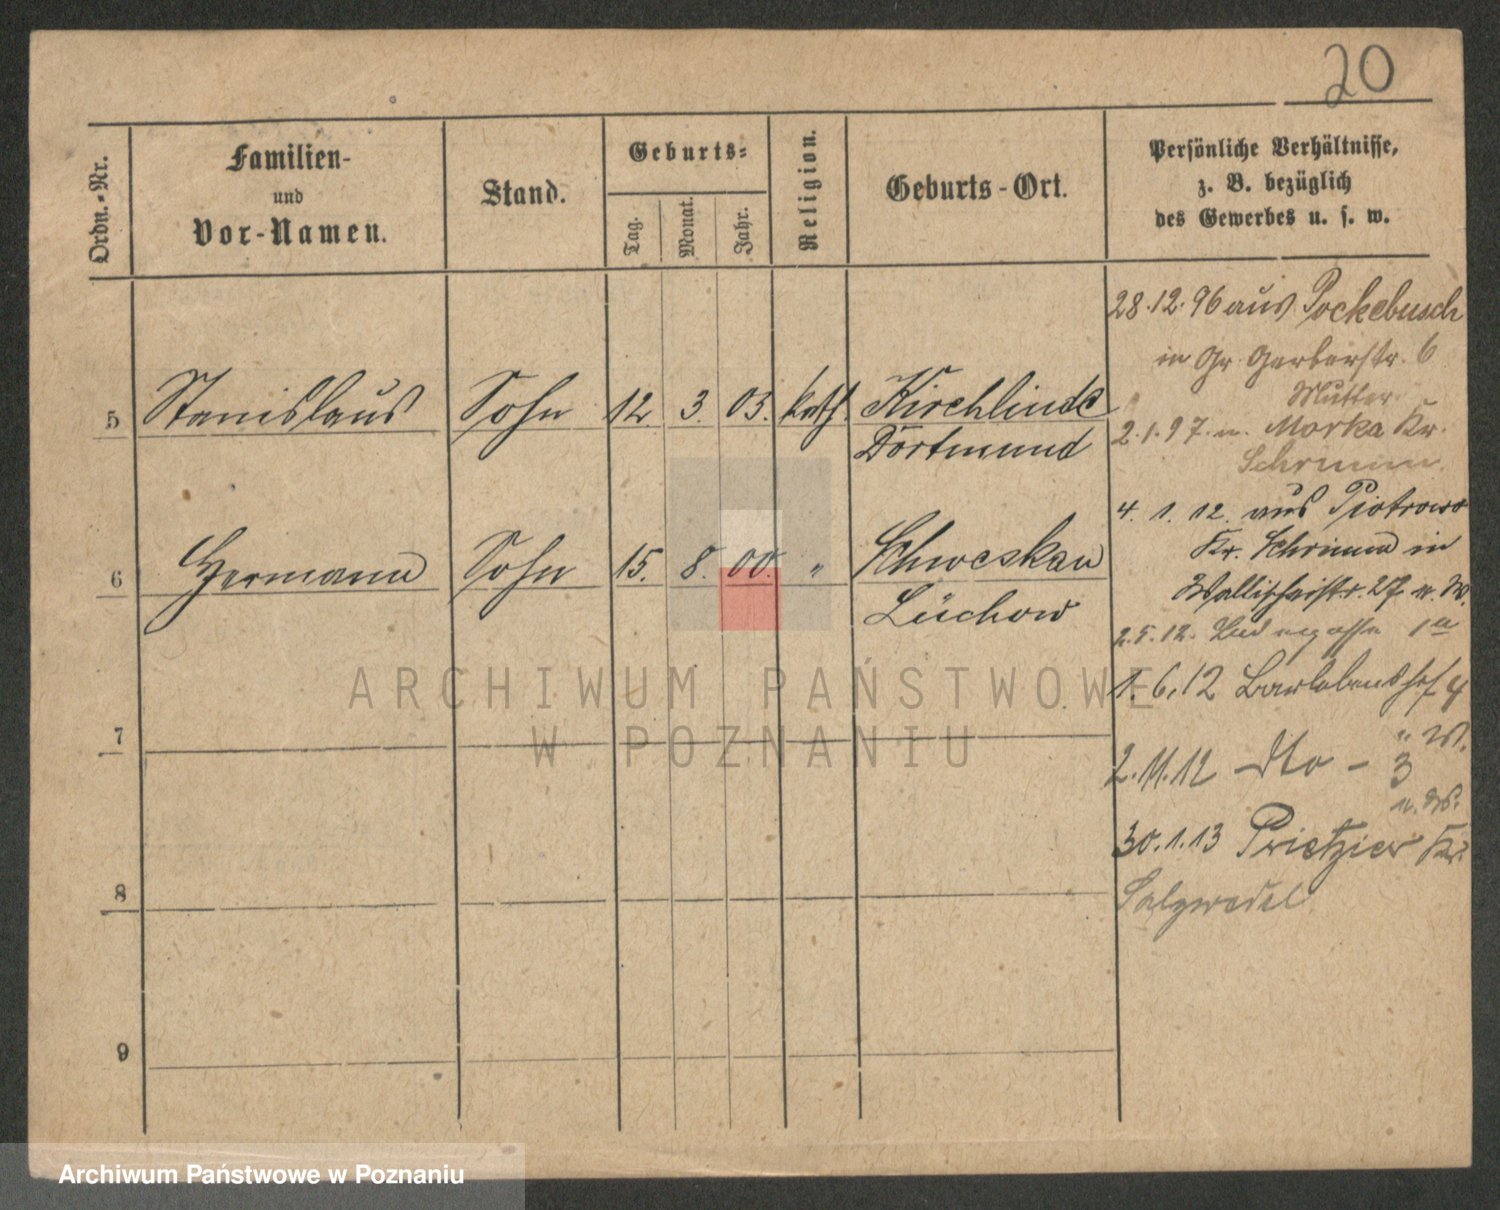 20
Ordn.-Nr.
Familien-
und
Vor-Namen.
Stand.
Geburts-
Tag.
Monat.
Jahr.
Religion.
Geburts-Ort.
Persönliche Verhältnisse,
z. B. bezüglich
des Gewerbes u. s. w.
28.12.96 aus Pockebusch
in Gr. Gerberstr. 6
Mutter.
2.1.97. n. Morka Kr.
Schrimm.
5 Stanislaus Sohn 12. 3. 03. kath. Kirchlinde
Dortmund
4. 1. 12. aus Piotrowo
Kr. Schrimm in
Wallischeistr. 27 u. W.
6 Hermann Sohn 15. 8. 00. " Schweskau
Lüchow
2.5.12. 1a
1.6.12 Barlebenshof 4
u. W.
7
2.11.12 – dto – 3
u. W.
30.1.13 Prietzier Kr.
8
Salzwedel
9
ARCHIWUM PAŃSTWOWE
W POZNANIU
Archiwum Państwowe w Poznaniu